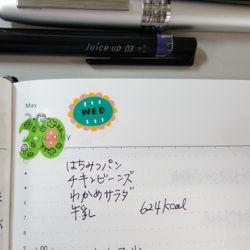 Juice up 03
May
WED
はちみつパン
チキンビーンズ
わかめサラダ
牛乳 624kcal